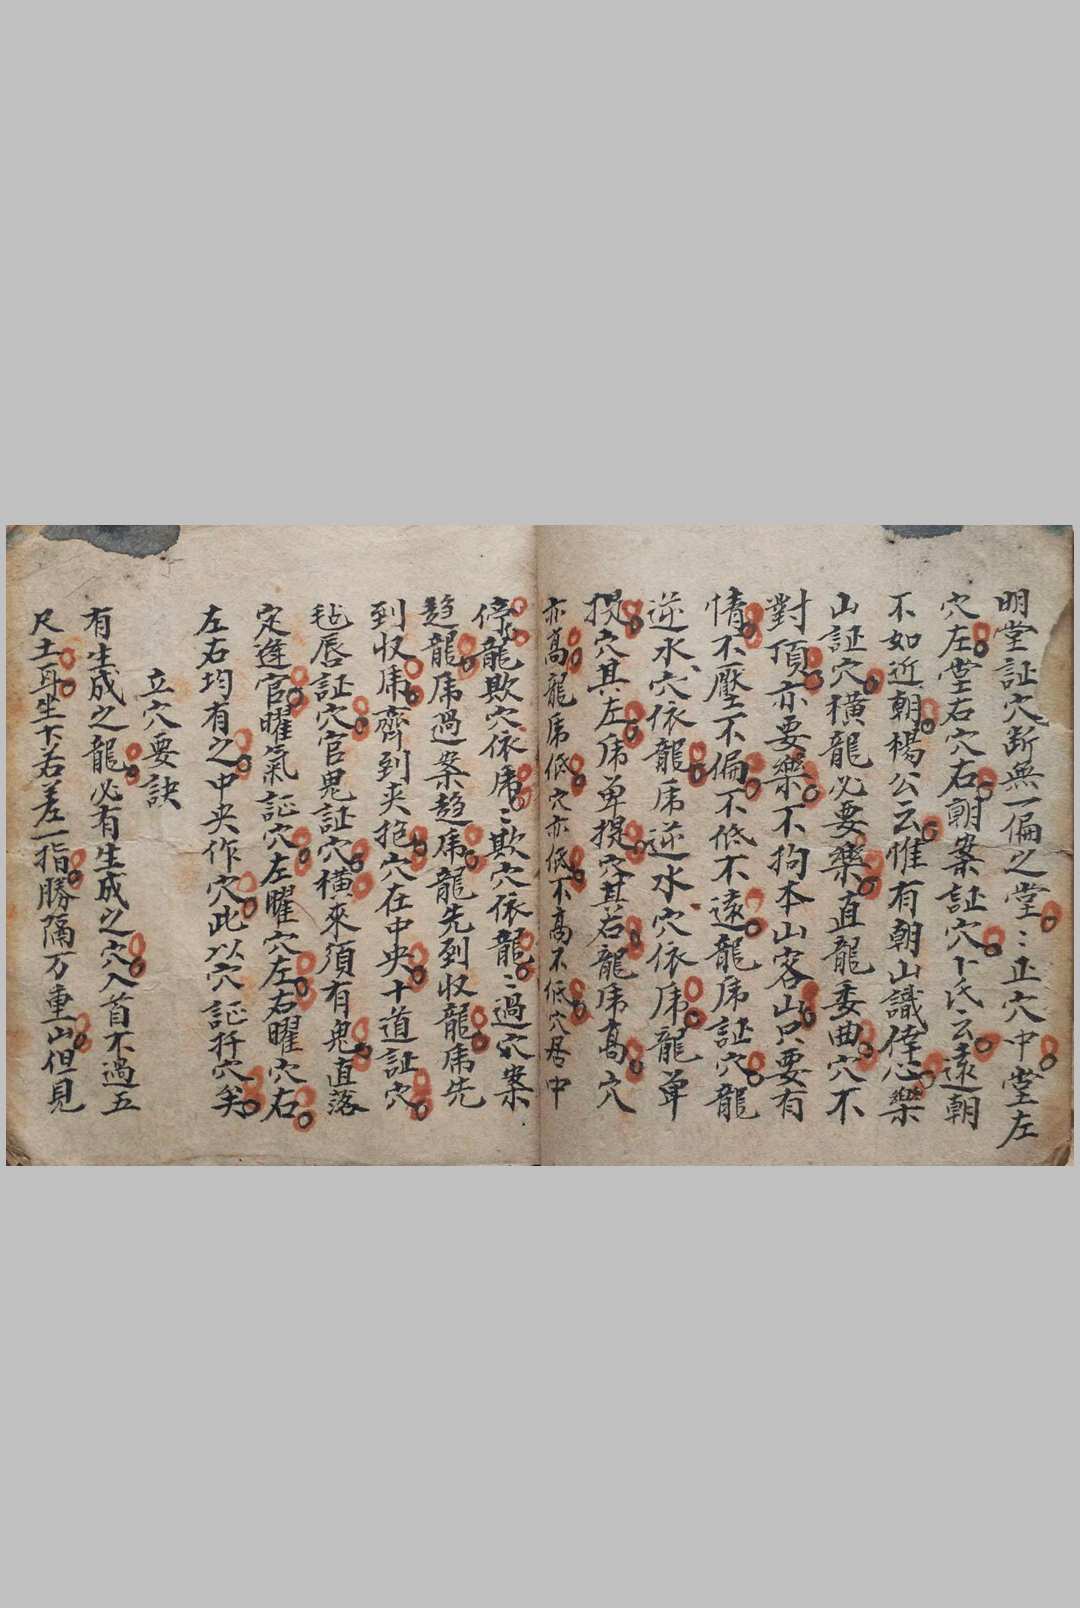 明堂証穴断無一偏之堂〻正穴中堂左
穴左堂右穴右朝案証穴卞氏云遠朝
不如近朝楊公云惟有朝山識倖心樂
山証穴橫龍必要樂直龍委曲穴不
對頂亦要樂不拘本山客山只要有
情不壓不偏不低不遠龍虎証穴龍
逆水穴依龍虎逆水穴依虎龍單
提穴其左虎單提穴其右龍虎高穴
亦高龍虎低穴亦低不高不低穴居中
停龍欺穴依虎〻欺穴依龍〻過穴案
趋龍虎過案趋虎龍先到収龍虎先
到収虎齊到夹抱穴在中央十道証穴
毡唇証穴官鬼証穴橫來須有鬼直落
定逢官曜氣証穴左曜穴左右曜穴右
左右均有之中央作穴此以穴証扞穴矣
立穴要訣
有生成之龍必有生成之穴入首不過五
尺土耳坐下若差一指勝隔万重山但見